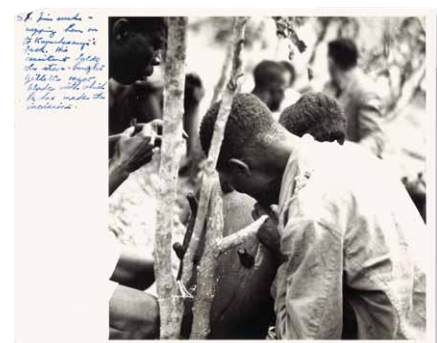 Jim sucks a
cupping horn on
Kapenkeny's
back. His
assistant holds
the store-bought
Gillette razor
blade with which
he has made the
incisions.